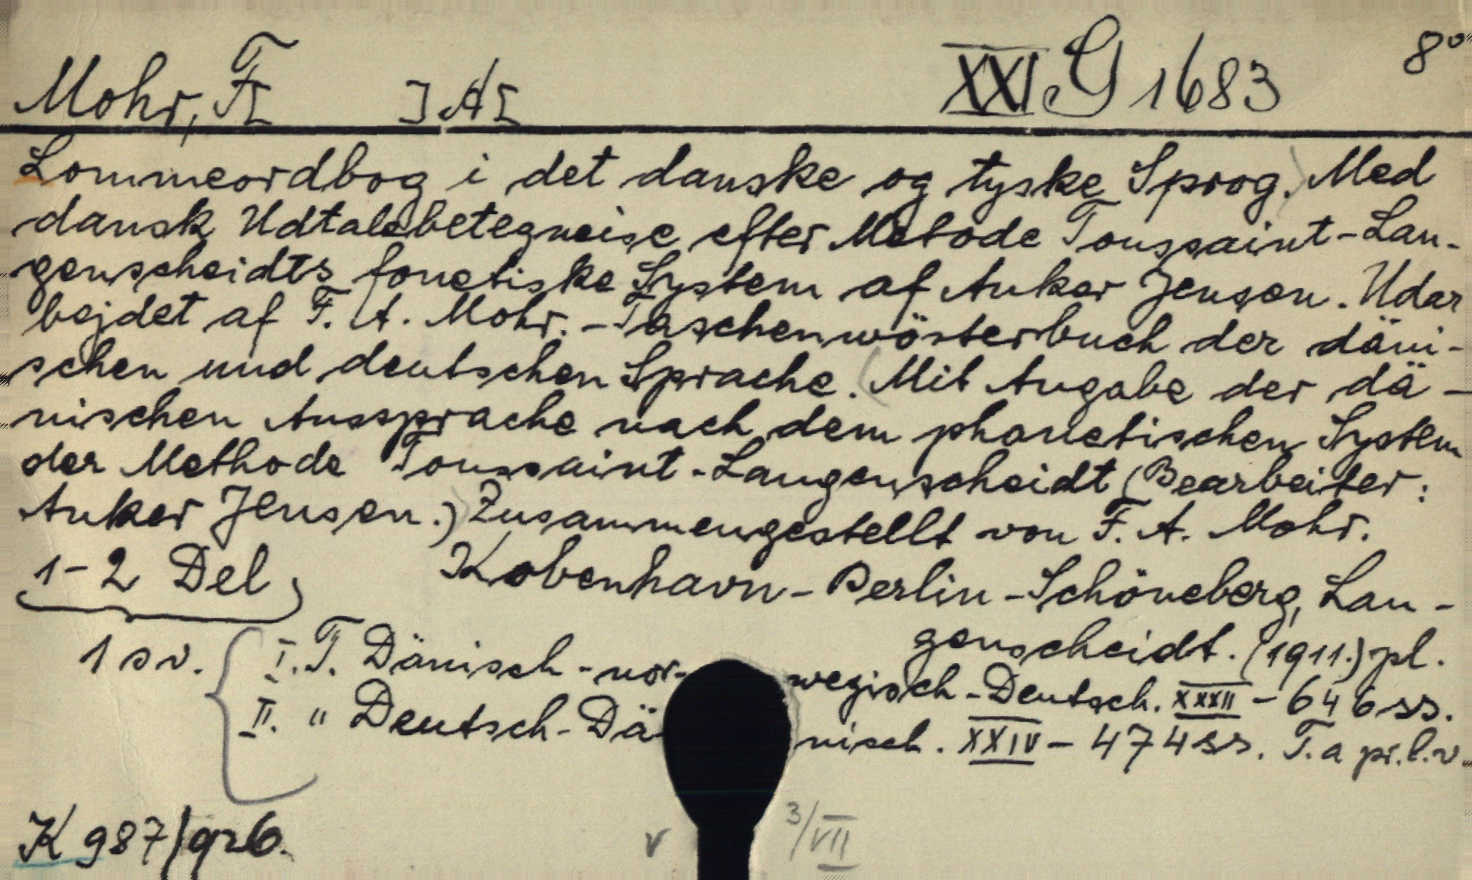 Mohr, F[ ]A[ XXI G 1683 8°
Lommeordbog i det danske og tyske Sprog. Med
dansk Udtalebetegnelse efter Metode Toussaint-Lan-
genscheidts fonetiske System af Anker Jensen. Udar
bejdet af F. A. Mohr. - Taschenwösterbuch der däni-
schen und deutschen Sprache. (Mit Angabe der dä-
nischen Aussprache nach dem phonetischen System
der Methode Toussaint-Langenscheidt (Bearbeiter:
Anker Jensen.) Zusammengestellt von F. A. Mohr.
1-2 Del
Kobenhavn - Berlin-Schöneberg, Lan-
genscheidt. (1911.) pl.
1 sv. I. T. Dänisch-norwegisch-Deutsch. XXXII - 646 ss.
II. " Deutsch-Dänisch. XXIV - 474 ss. T. a pr. l. v.
K 987/926.
v 3/VII